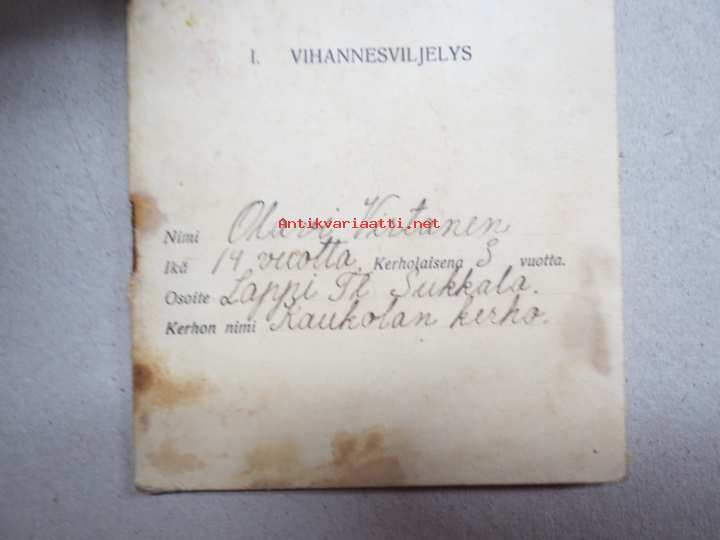 I. VIHANNESVILJELYS
Antikvariaatti.net
Nimi Olavi Virtanen
Ikä 14 vuotta. Kerholaisena 3 vuotta.
Osoite Lappi Tl Sukkala.
Kerhon nimi Kaukolan kerho.